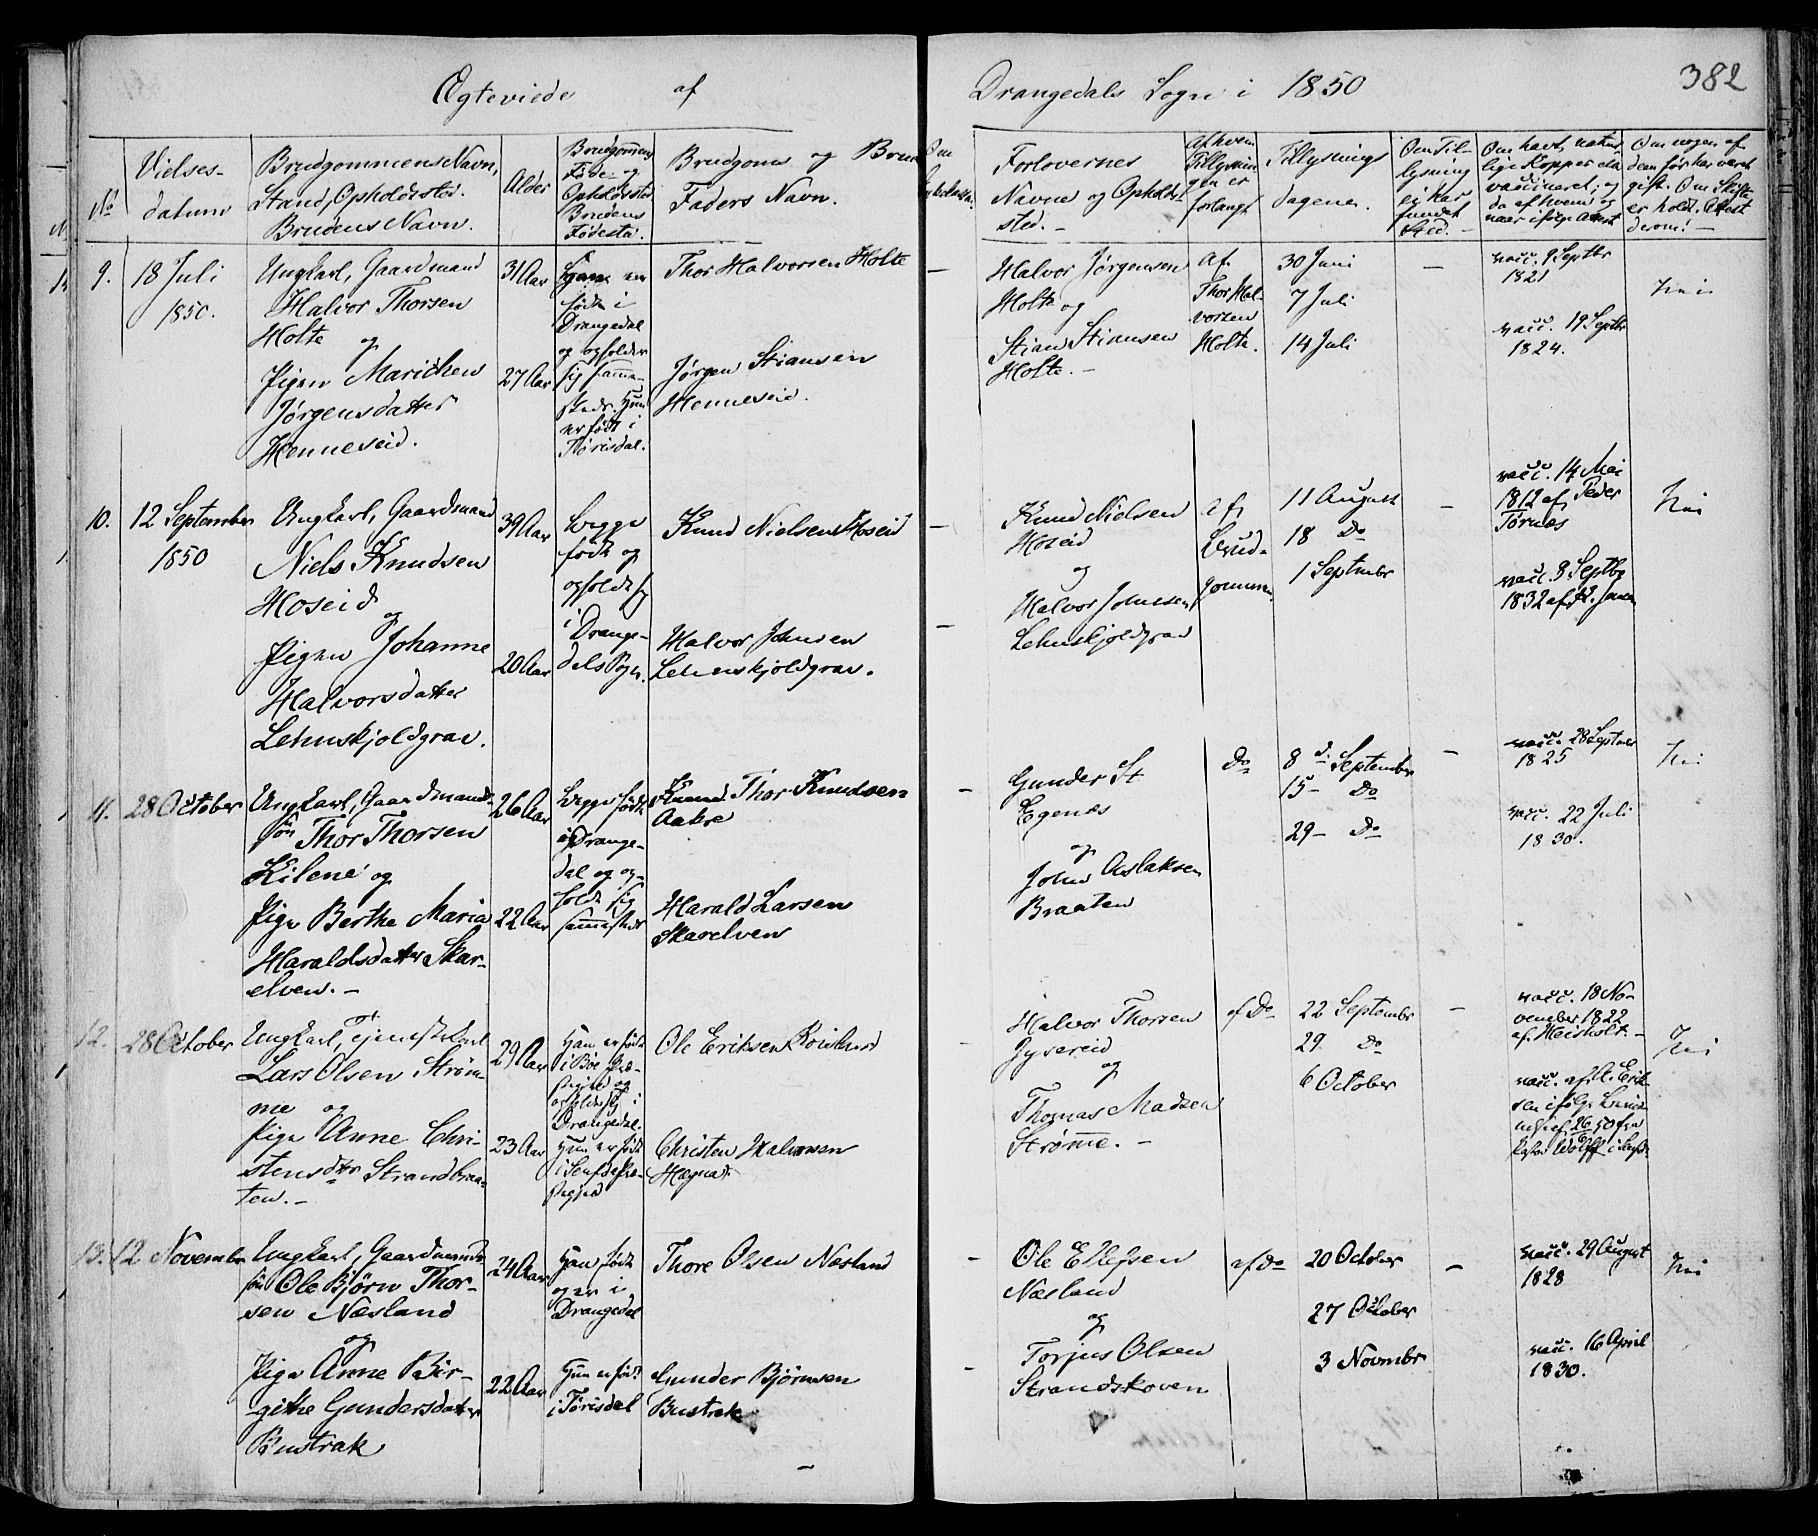 Ægteviede af Drangedals Sogn i 1850 382
No
Vielses-
datum
Brudgommens Navn,
Stand, Opholdssted.
Brudens Navn.
Alder
Brudgommens
Føde- og
Opholdssted
Brudens
Fødested.
Brudgoms og Brudens
Faders Navn.
Forlovernes
Navne og Opholds-
sted.
Af hvem
Tillysnin-
gen er
forlangt
Tillysnings
dagene.
Om Til-
lysning
ej har
fundet
Sted.
Om havt natur-
lige Kopper ell.
vaccineret, og
da af hvem og
naar ifølge Attest
Om nogen af
dem før har været
gift. Om Skifte
er holdt. Attest
derom.
9. 18 Juli
1850.
Ungkarl, Gaardmand
Halvor Thorsen
Holte og
Pigen Marichen
Jørgensdatter
Henneseid.
31 Aar
27 Aar
født i
Drangedal
og opholder
sig samme-
steds. Hun
er født i
Tørrisdal.
Thor Halvorsen Holte
Jørgen Stiansen
Henneseid.
Halvor Jørgensen
Holte og
Stian Stiansen
Holte.
Af
Thor Hal-
vorsen
Holte.
30 Juni
7 Juli
14 Juli
vacc. 9 Septbr
1821
vacc. 19 Septbr
1824.
Nei
10. 12 September
1850
Ungkarl, Gaardmand
Niels Knudsen
Hoseid
og
Pigen Johanne
Halvorsdatter
Lehnskjoldgrav.
39 Aar
20 Aar
Begge
født og
opholdt sig
i Drange-
dals Sogn.
Knud Nielsen Hoseid
Halvor Johnsen
Lehnskjoldgrav.
Knud Nielsen
Hoseid
og
Halvor Johnsen
Lehnskjoldgrav
af
Brud-
gommen
11 August
18 Do
1 Septmbr
vacc. 14 Mai
1812 af Peder
Tørnes
vacc. 8 Septbr
1832 af
Nei
11. 28 October
Ungkarl, Gaardmands-
søn Thor Thorsen
Kilene og
Pige Berthe Maria
Haraldsdatter Skar-
elven.
26 Aar
22 Aar
Begge født
i Drange-
dal og op-
holdt sig
sammesteds
Thor Knudsen
Aakre
Harald Larsen
Skarelven
Gunder St
Egenæs
og
John Aslaksen
Braaten
Do
8 d. September
15 - Do
29 - Do
vacc. 28 Septmbr
1825
vacc. 22 Juli
1830.
Nei
12. 28 October
Ungkarl, Tjenestekarl
Lars Olsen Strøm-
me og
Pige Anne Chri-
stensdtr Strandbraa-
ten.
29 Aar
23 Aar
Han er født
i Bøe Præ-
stegjeld og
opholdt sig i
Drangedal.
Hun er født
Ole Eriksen
Christen Halvorsen
Halvor Thorsen
Gjysereid
og
Thomas Madsen
Strømme.
af Do
22 Septembr
29. Do
6 October
vacc. 18 No-
vember 1822
af Heisholt.
Nei
13. 12 November
Ungkarl, Gaardmands
søn Ole Bjørn Thor-
sen Næsland
og
Pige Anne Bir-
githe Gundersdatter
Bustrak
24 Aar
22 Aar
Han født
og er i
Drangedal
Hun er født
i Tørisdal
Thore Olsen Næsland
Gunder Bjørnsen
Bustrak
Ole Ellefsen
Næsland
og
Torjus Olsen
Strandskoven
af do
20 October
27 October
3 Novmbr
vacc. 29 August
1828
vacc. 16 April
1830.
Nei